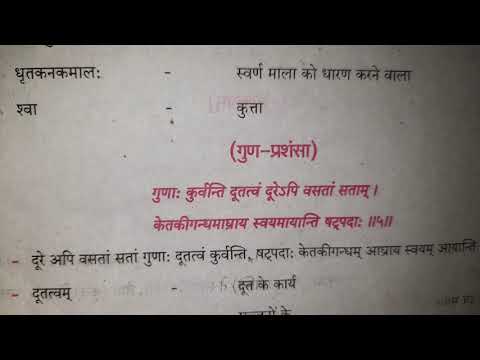 धृतकनकमालः - स्वर्ण माला को धारण करने वाला
श्वा - कुत्ता
(गुण-प्रशंसा)
गुणाः कुर्वन्ति दूतत्वं दूरेऽपि वसतां सताम् ।
केतकीगन्धमाघ्राय स्वयमायान्ति षट्पदाः ॥५॥
- दूरे अपि वसतां सतां गुणाः दूतत्वं कुर्वन्ति, षट्पदाः केतकीगन्धम् आघ्राय स्वयम् आयान्ति
- दूतत्वम् - दूत के कार्य